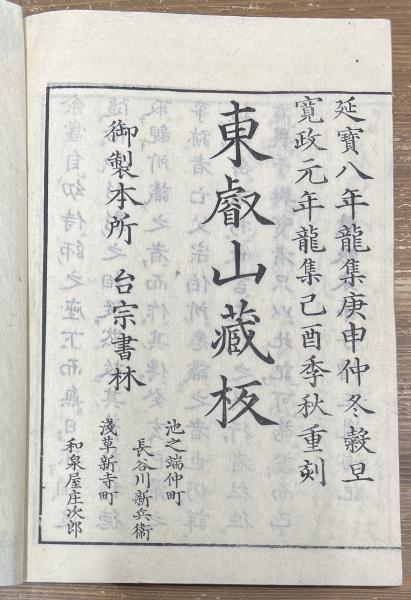 延寶八年龍集庚申仲冬穀旦
寛政元年龍集己酉季秋重刻
東叡山藏板
御製本所 台宗書林
池之端仲町
長谷川新兵衛
淺草新寺町
和泉屋庄次郎